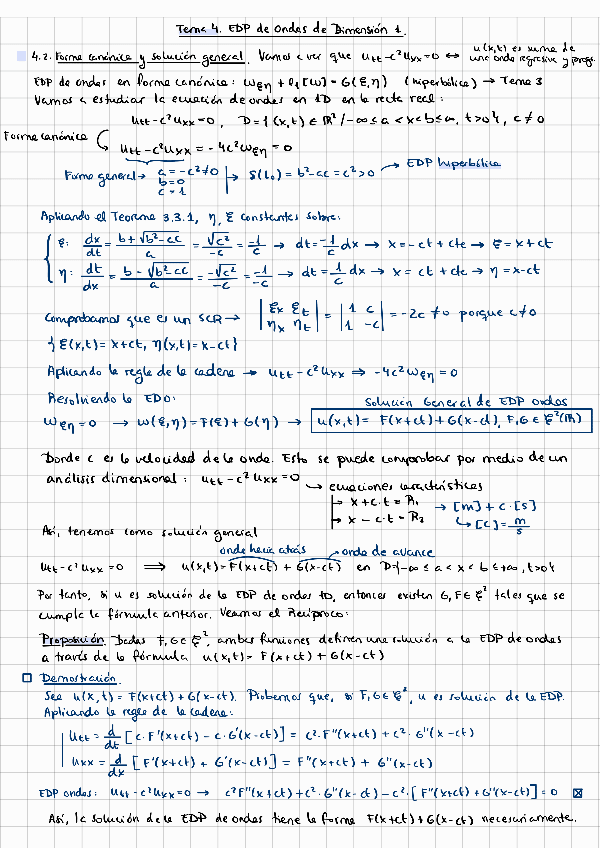 Tema 4. EDP de Ondas de Dimensión 1.
4.2. Forma canónica y solución general. Vamos a ver que u_tt - c²u_xx = 0 ⟺ u(x,t) es suma de
una onda regresiva y progr.
EDP de ondas en forma canónica: ω_ξη + l₁[ω] = G(ξ,η) (hiperbólica) → Tema 3
Vamos a estudiar la ecuación de ondas en 1D en la recta real:
u_tt - c²u_xx = 0, D = {(x,t) ∈ ℝ² / -∞ ≤ a < x < b ≤ ∞, t > 0}, c ≠ 0
Forma canónica
u_tt - c²u_xx = -4c²ω_ξη = 0
Forma general → a = -c² ≠ 0
b = 0
c = 1
→ δ(L₀) = b² - ac = c² > 0 → EDP hiperbólica
Aplicando el Teorema 3.3.1, η, ξ constantes sobre:
ξ: dx/dt = (b + √(b²-ac))/a = √c²/-c = -1/c → dt = -1/c dx → x = -ct + cte → ξ = x + ct
η: dt/dx = (b - √(b²-ac))/a = -√c²/-c = -1/-c → dt = 1/c dx → x = ct + cte → η = x - ct
Comprobamos que es un SCR → |ξx ξt; ηx ηt| = |1 c; 1 -c| = -2c ≠ 0 porque c ≠ 0
{ξ(x,t) = x + ct, η(x,t) = x - ct}
Aplicando la regla de la cadena → u_tt - c²u_xx ⟹ -4c²ω_ξη = 0
Resolviendo la EDO:
Solución General de EDP ondas
ω_ξη = 0 → ω(ξ,η) = F(ξ) + G(η) → u(x,t) = F(x+ct) + G(x-ct), F,G ∈ ξ²(ℝ)
Donde c es la velocidad de la onda. Esto se puede comprobar por medio de un
análisis dimensional: u_tt - c²u_xx = 0 → ecuaciones características
→ x + c·t = R₁
→ x - c·t = R₂
→ [m] + c·[s]
→ [c] = m/s
Así, tenemos como solución general
onda hacia atrás onda de avance
u_tt - c²u_xx = 0 ⟹ u(x,t) = F(x+ct) + G(x-ct) en D = {-∞ ≤ a < x < b ≤ +∞, t > 0}
Por tanto, si u es solución de la EDP de ondas 1D, entonces existen G, F ∈ ξ² tales que se
cumple la fórmula anterior. Veamos el Recíproco:
Proposición. Dadas F, G ∈ ξ², ambas funciones definen una solución a la EDP de ondas
a través de la fórmula u(x,t) = F(x+ct) + G(x-ct)
Demostración.
Sea u(x,t) = F(x+ct) + G(x-ct). Probemos que, si F,G ∈ ξ², u es solución de la EDP.
Aplicando la regla de la cadena:
u_tt = d/dt [c·F'(x+ct) - c·G'(x-ct)] = c²·F''(x+ct) + c²·G''(x-ct)
u_xx = d/dx [F'(x+ct) + G'(x-ct)] = F''(x+ct) + G''(x-ct)
EDP ondas: u_tt - c²u_xx = 0 → c²F''(x+ct) + c²·G''(x-ct) - c²·[F''(x+ct) + G''(x-ct)] = 0 ⊠
Así, la solución de la EDP de ondas tiene la forma F(x+ct) + G(x-ct) necesariamente.